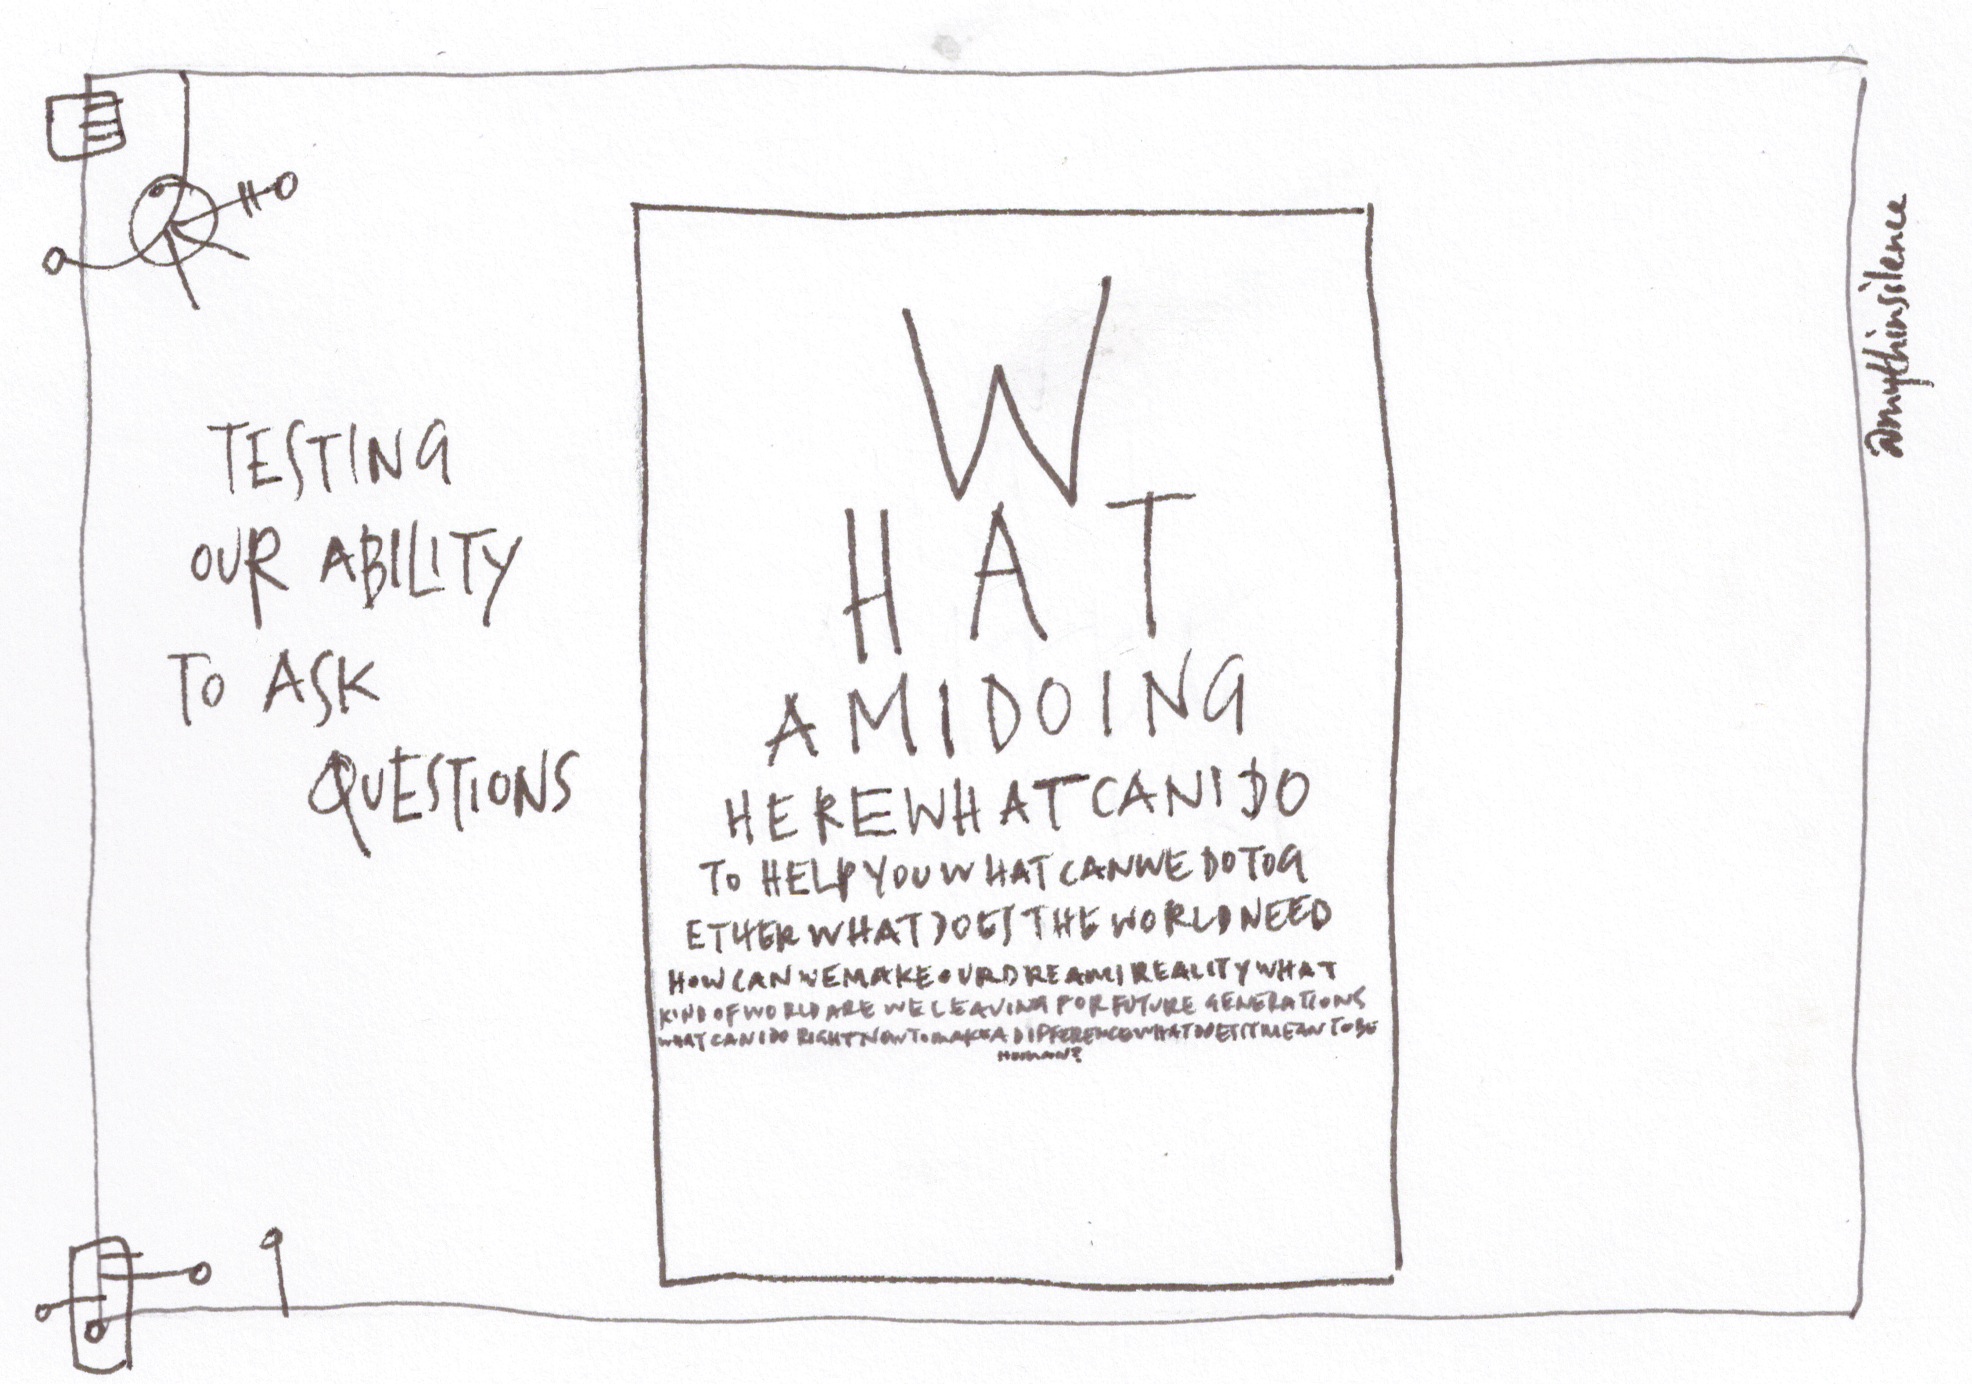 TESTING
OUR ABILITY
TO ASK
QUESTIONS
W
HAT
AMIDOING
HEREWHATCANIDO
TO HELPYOUWHATCANWEDOTOG
ETHERWHATDOESTHEWORLDNEED
HOWCANWEMAKEOURDREAMSREALITYWHAT
KINDOFWORLDAREWELEAVINGFORFUTURE GENERATIONS
WHATCANIDO RIGHTNOWTOMAKEADIFFERENCEWHATDOESITMEANTOBE
HUMAN?
@mythinsilence